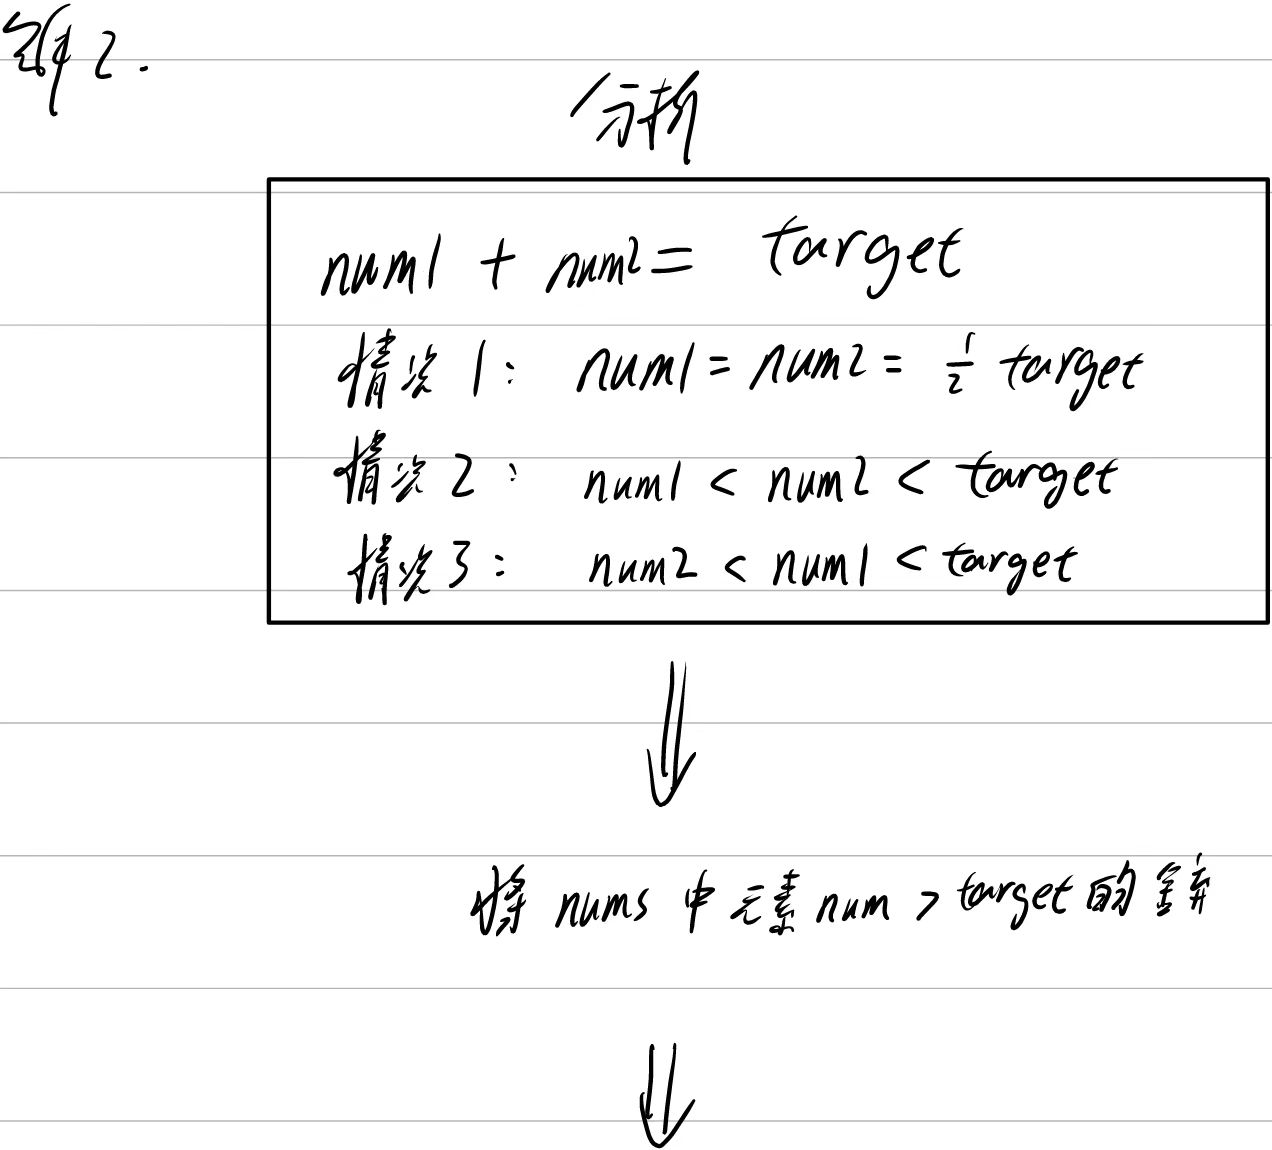 解2.
分析
num1 + num2 = target
情况1: num1 = num2 = 1/2 target
情况2: num1 < num2 < target
情况3: num2 < num1 < target
将 nums 中元素 num > target 的舍弃